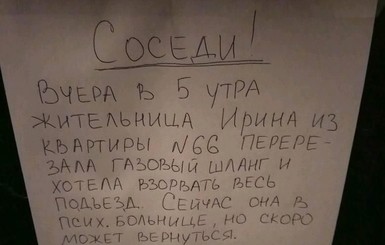 СОСЕДИ!
ВЧЕРА В 5 УТРА
ЖИТЕЛЬНИЦА ИРИНА ИЗ
КВАРТИРЫ N66 ПЕРЕРЕ-
ЗАЛА ГАЗОВЫЙ ШЛАНГ И
ХОТЕЛА ВЗОРВАТЬ ВЕСЬ
ПОДЬЕЗД. СЕЙЧАС ОНА В
ПСИХ. БОЛЬНИЦЕ, НО СКОРО
МОЖЕТ ВЕРНУТЬСЯ.